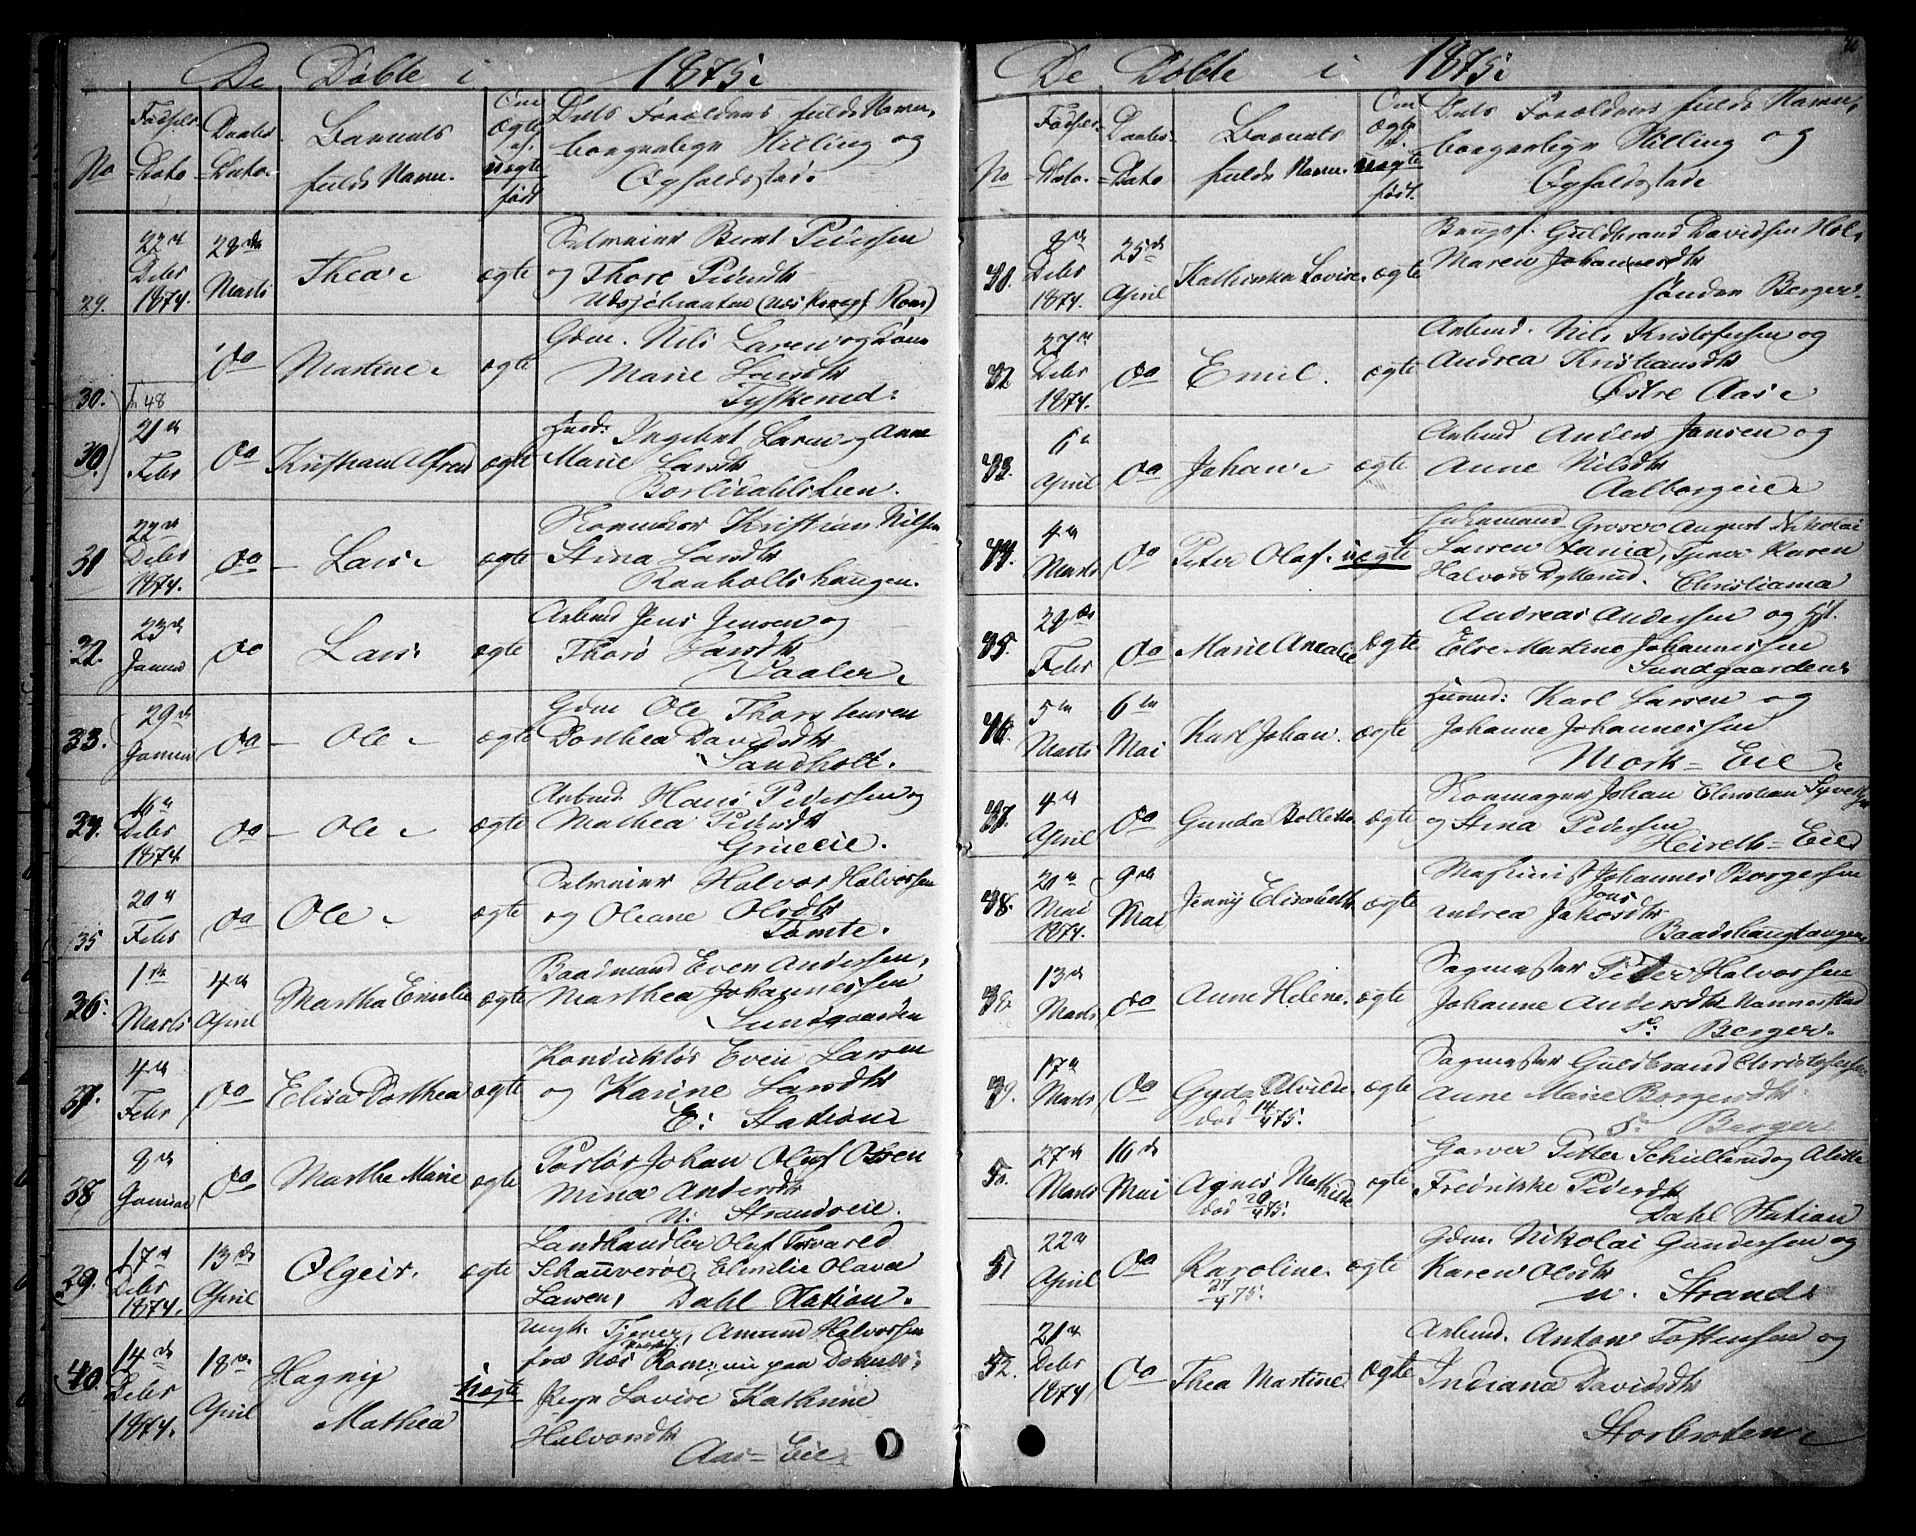 De Døbte i 1875.
No
Fødsels-Dato.
Daabs-Dato.
Barnets fulde Navn.
Om ægte el. uægte født
Dets Forældres fulde Navn, borgerlige Stilling og Opholdssted.
29.
22de Decbr 1874.
28de Marts
Thea
ægte
Selveier Bernt Pedersen
og Thore Pedersdtr
30.
do
Martine
ægte
Gdm. Nils Larsen og
Marie Larsdtr
30.)
21de Febr
do
Kristian Alfred
ægte
Husmd. Ingebret Larsen og Anne
Marie Larsdtr
31
22de Decbr 1874.
do
Lars
ægte
Kristian Nilsen
Stina Larsdtr
Raaholtshaugen.
32.
23de Januar
do
Lars
ægte
Arbmd Jens Jensen og
Thore Larsdtr
Vaaler.
33.
29de Januar
do
Ole
ægte
Gdm Ole Thorstensen
Dorthea Davidsdtr
Sandholt.
34.
16de Decbr 1874.
do
Ole
ægte
Arbmd. Hans Pedersen og
Mathea Pedersdtr
Grueeie.
35
20de Febr
do
Ole
ægte
Selveier Halvor Halvorsen
og Oleane Olsdtr
Tomte.
36.
1ste Marts
4de April
Martha Emilie
ægte
Baadmand Even Andersen,
Marthea Johannessen
Sundgaarden
37.
4de Febr
do
Elisa Dorthea
ægte
Konduktør Even Larsen
og Karine Larsdtr
E: Station
38
8de Januar
do
Marthe Marie
ægte
Johan Oluf Olsen
Mina Andersdtr
N: Strandseie.
39.
17de Decbr 1874.
13de April
Olgeir.
ægte
Landhandler Oluf
Emilie Olava
Larsen, Dahl Station.
40.
14de Decbr 1874.
18de April
Hagny Mathea
uægte
Ungk. Tjener, Amund Halvorsen
fra Næs Rom:
Pige Lovise Kathrine
Halvorsdtr
Aas-Eie
De Døbte i 1875.
No
Fødsels-Dato.
Daabs-Dato
Barnets fulde Navn.
Om ægte el. uægte født.
Dets Forældres fulde Navn, borgerlige Stilling og Opholdssted
41.
8de Decbr 1874.
25de April
Kathinka Lovise
ægte
Brugsf. Guldbrand Davidsen
Maren Johannesdtr
søndre Berger.
42
27de Decbr 1874.
do
Emil.
ægte
Arbmd. Nils Kristofersen og
Andrea Kristiansdtr
Østre Aas
43.
6te April
do
Johan
ægte
Arbmd Anders Jansen og
Anne Nilsdtr
Aalborgeie
44.
4de Marts
do
Peter Olaf.
uægte
August Nikolai
Larsen Tjener Karen
Halvors
Christiania
45.
28de Febr
do
Marie Amalie
ægte
Andreas Andersen og
Else Martine Johannessen
Sundgaarden
46.
5te Marts
6te Mai
Karl Johan.
ægte
Husmd: Karl Larsen og
Johanne Johannessen
Mork-Eie
47.
4de April
do
Gunda Bollette
ægte
Johan Christian
og Stina Pedersen
Eie
48.
20de Mai 1874.
9de Mai
Jenny Elisabeth
ægte
Maskinist Johannes Borgersen
Andrea Jakobsdtr
Baadshaugtangen
13de Marts
do
Anne Helene.
ægte
Sagmester Peter Halvorsen
Johanne Andersdtr Nannestad
S: Berger.
17de Marts
do
Gyda Alvilde
død 14/4 75.
ægte
Sagmester Guldbrand Christofersen
Anne Marie Borgersdtr
S: Berger
50.
27de Marts
16de Mai
Agnes Mathilde
død 20/4 75.
ægte
Garver Petter og
Fredrikke Pedersdtr
Dahl Station
51
22de April
do
Karoline.
27/4 75.
ægte
Gdm. Nikolai Gundersen og
Karen Olsdtr
N. Strand.
52.
21de Decbr 1874
do
Thea Martine
ægte
Arbmd. Anton Tostensen og
Indiana Davidsdtr
Storbraaten